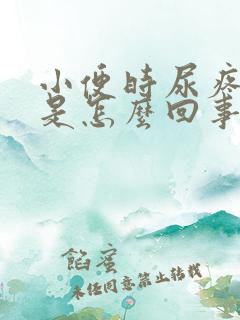 小便時尿疼
是怎麼回事
餡蜜
未经同意禁止转载